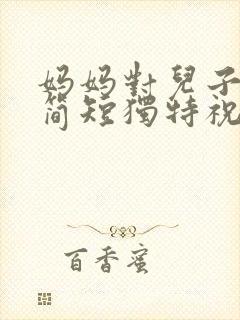 妈妈對兒子
简短獨特祝
百香蜜